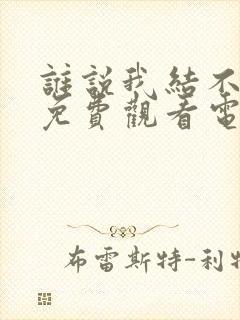 誰説我結不
免費觀看電
布雷斯特-利特